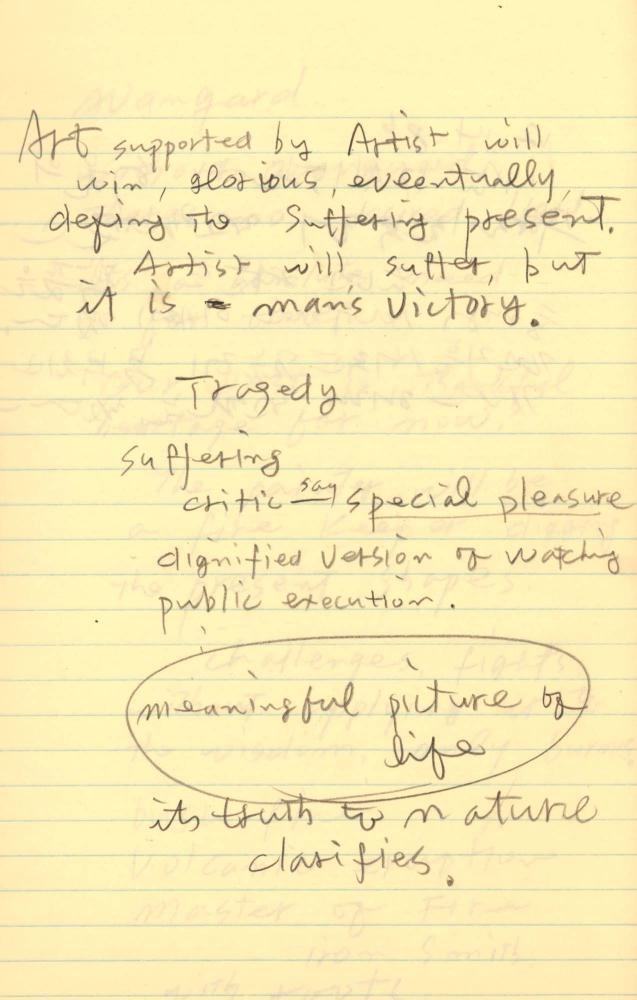 Art supported by Artist will
win, glorious, eveentually,
defing the Suffering present.
Artist will suffer, but
it is man's Victory.
Tragedy
suffering
critic say special pleasure
dignified version of watching
public execution.
meaningful picture of
life
its truth to nature
clarifies.